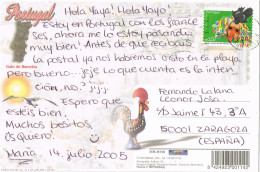 Portugal
Hola Yaya! Hola Yayo!
Estoy en Portugal con los france
ses, ahora me lo estoy pasando
muy bien! Antes de que recibais
la postal ya nos habremos visto en la playa
pero bueno... jeje lo que cuenta es la inten
ción, no? ;-)
Espero que
esteis bien,
Muchos besitos
os quiero!
María, 14 julio, 2005
Galo de Barcelos
Fernando Latana
Leonor Josa
c/ Jaime I 43, 3ºA
50001 ZARAGOZA
(ESPAÑA)